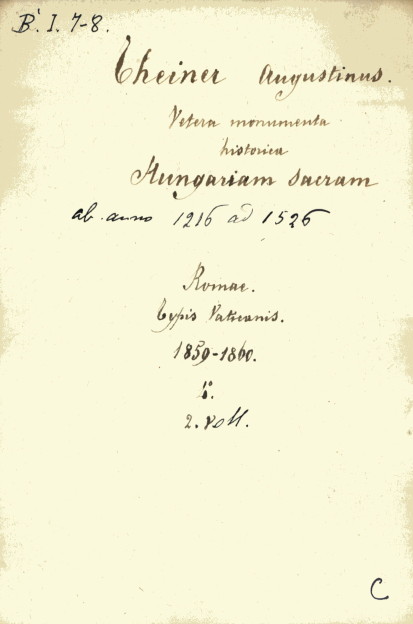 B. I. 7-8.
Theiner Augustinus.
Vetera monumenta
historica
Hungariam sacram
ab. anno 1216 ad 1526
Romae.
Typis Vaticanis.
1859-1860.
4°.
2. voll.
C